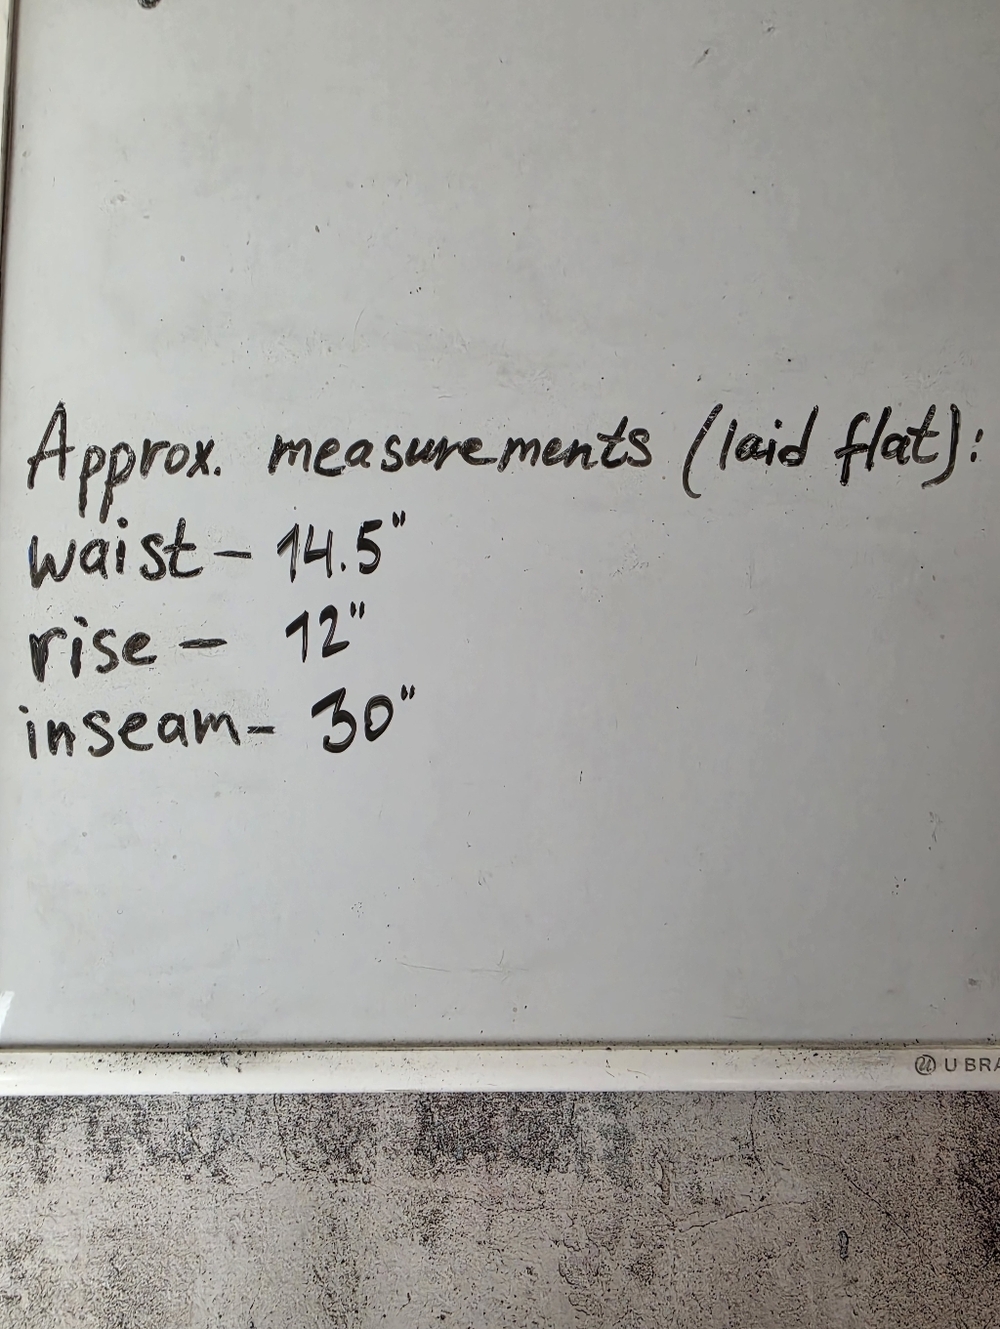 Approx. measurements (laid flat):
waist – 14.5"
rise – 12"
inseam – 30"
U BRA